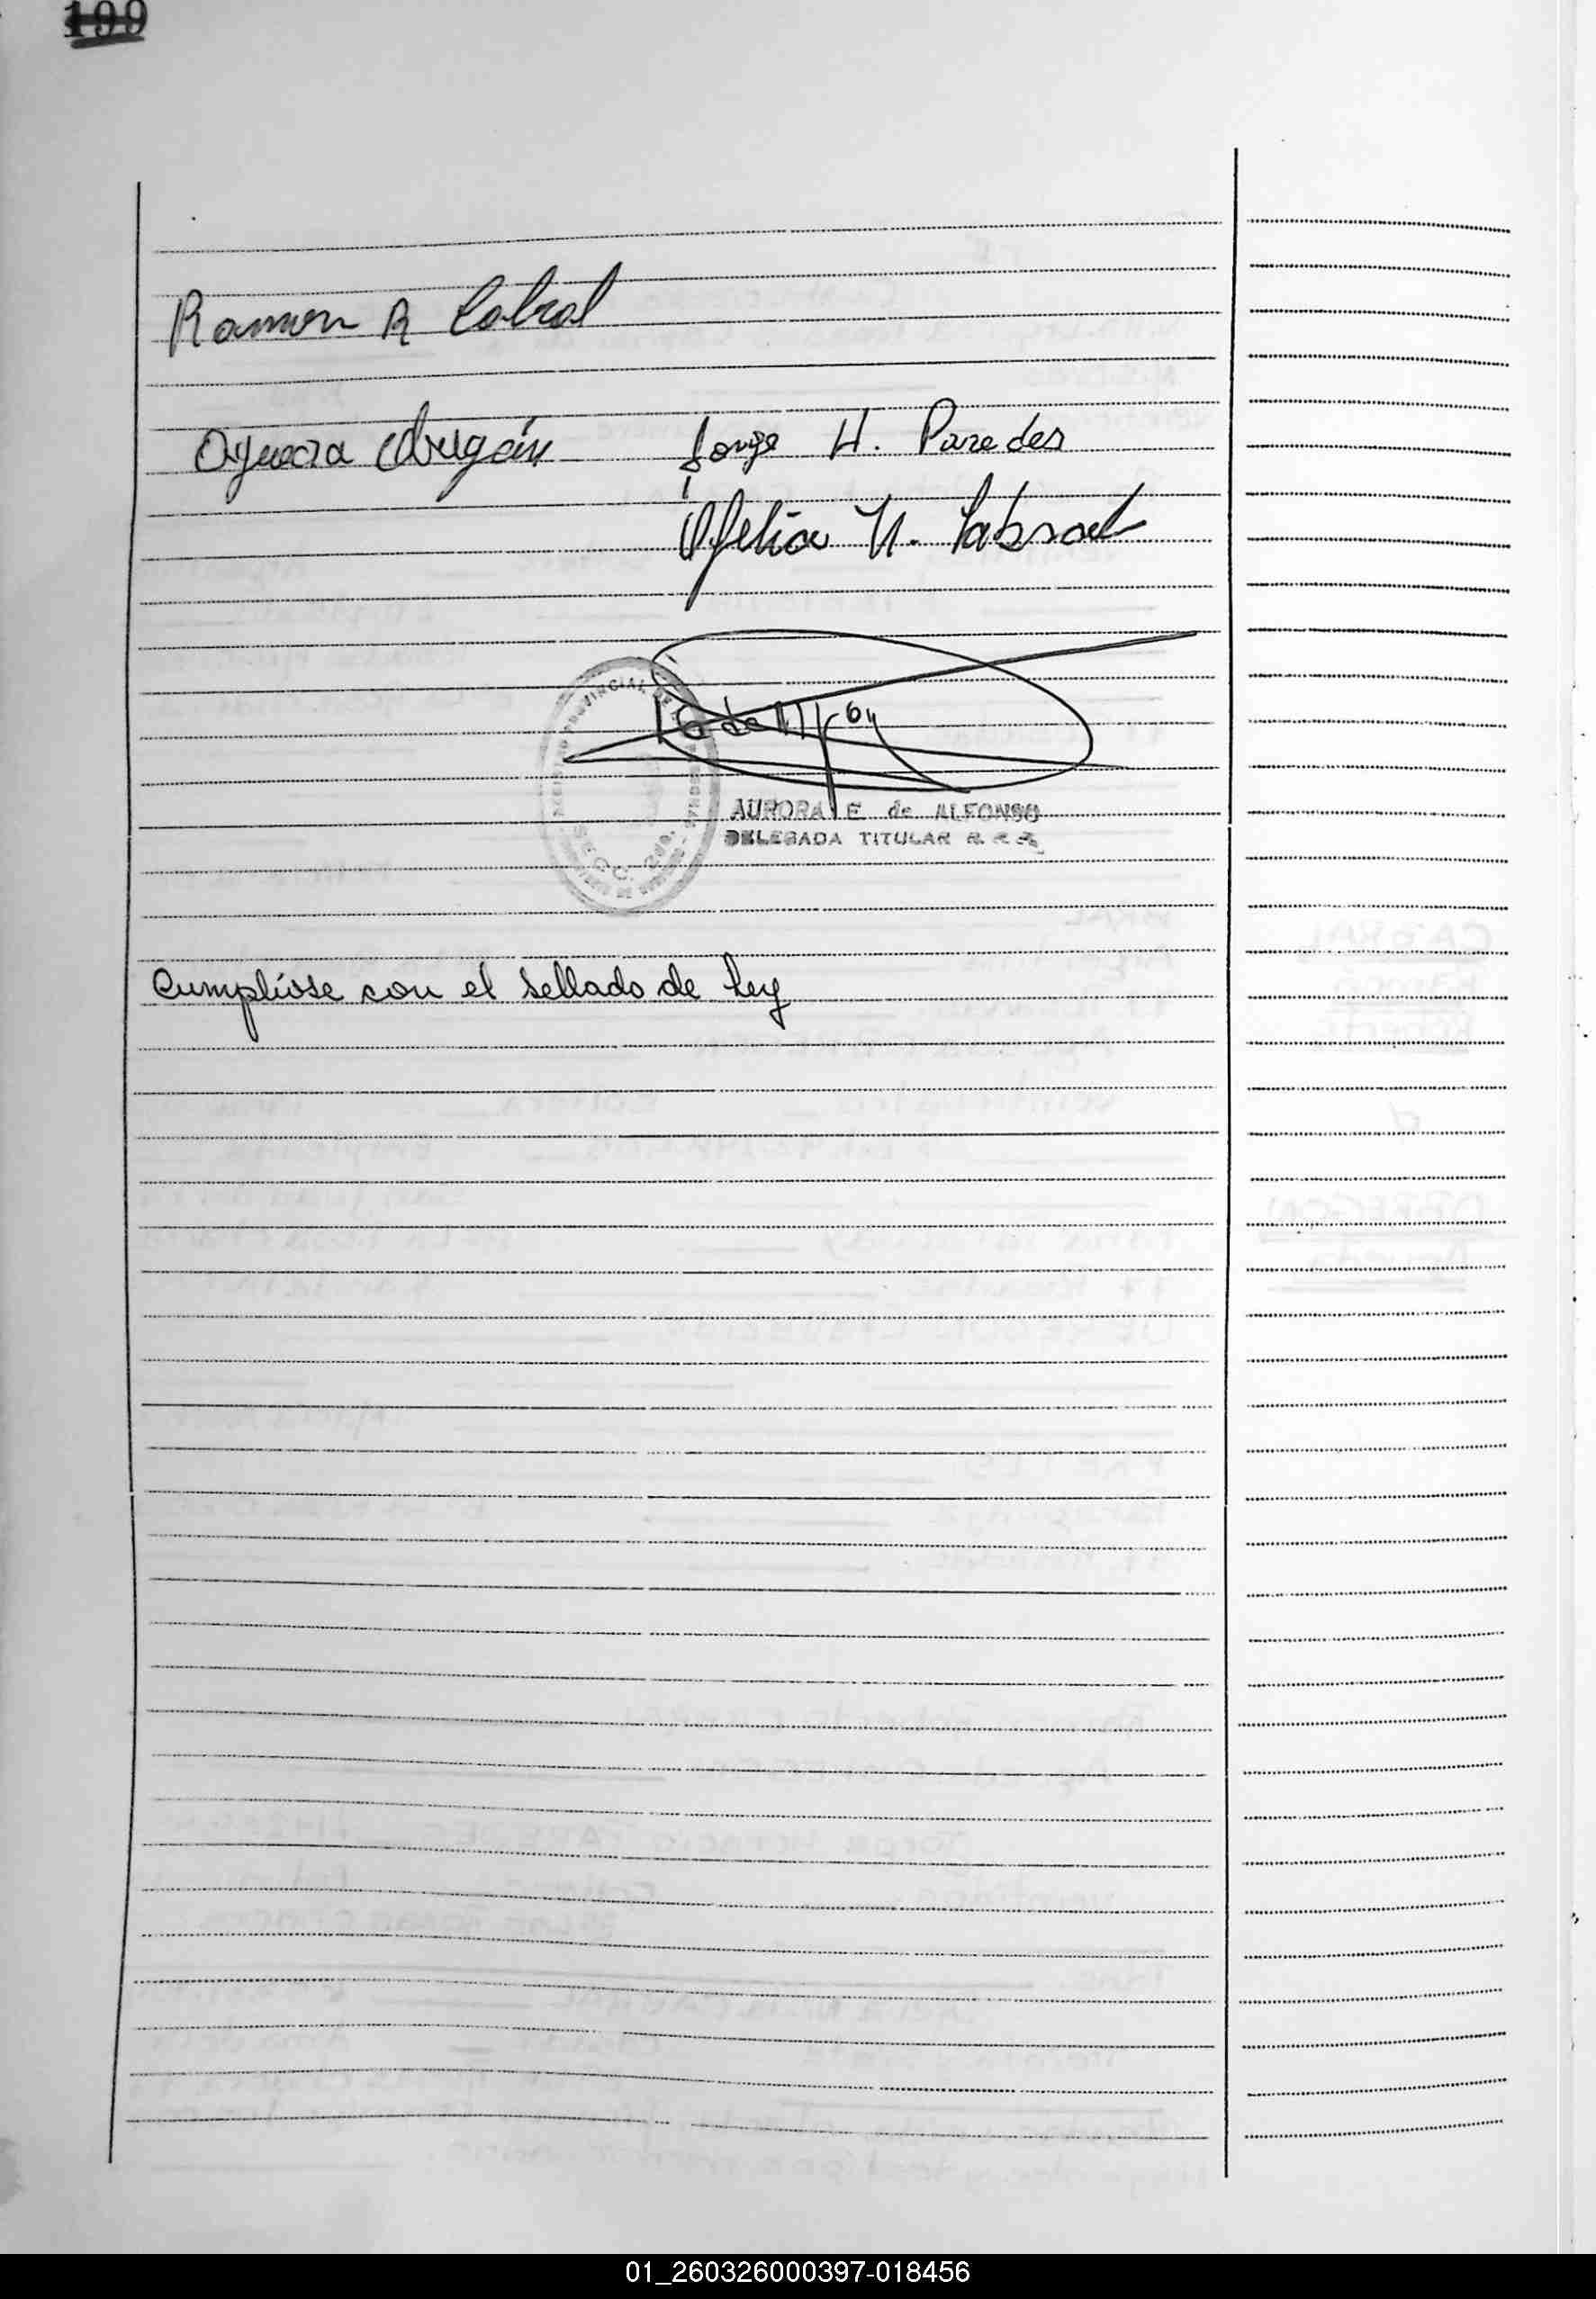 199
Ramon R Cabral
Agueda Obregón Jorge H. Paredes
Ofelia N. Cabral
AURORA E. de ALFONSO
DELEGADA TITULAR
SECC. 2da.
Cumplióse con el sellado de ley
01_260326000397-018456